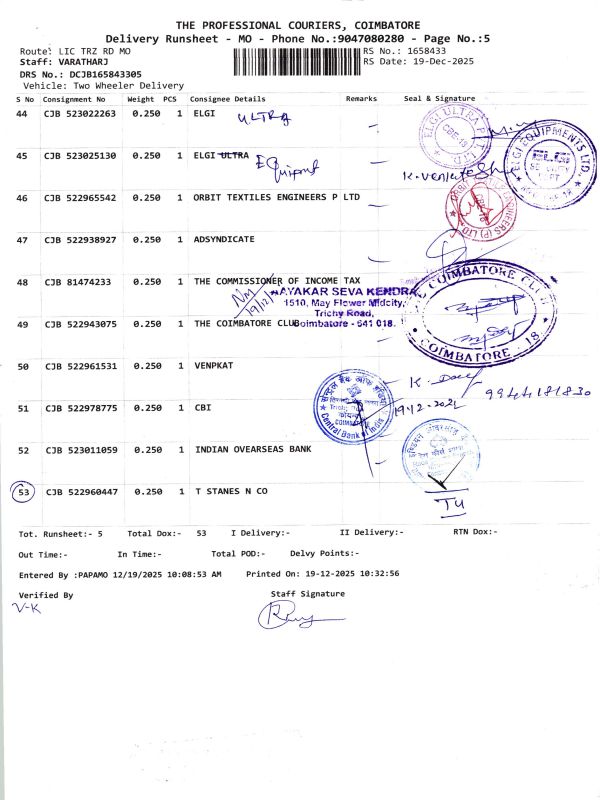 THE PROFESSIONAL COURIERS, COIMBATORE
Delivery Runsheet - MO - Phone No.:9047080280 - Page No.:5
Route: LIC TRZ RD MO
RS No.: 1658433
Staff: VARATHARJ
RS Date: 19-Dec-2025
DRS No.: DCJB165843305
Vehicle: Two Wheeler Delivery
S No Consignment No Weight PCS Consignee Details Remarks Seal & Signature
44 CJB 523022263 0.250 1 ELGI ULTRA
ELGI ULTRA
45 CJB 523025130 0.250 1 ELGI ULTRA Equipment
ELGI EQUIPMENTS LTD.
46 CJB 522965542 0.250 1 ORBIT TEXTILES ENGINEERS P LTD
47 CJB 522938927 0.250 1 ADSYNDICATE
48 CJB 81474233 0.250 1 THE COMMISSIONER OF INCOME TAX
AYAKAR SEVA KENDRA
1510, May Flower Midcity,
Trichy Road,
Coimbatore - 641 018.
49 CJB 522943075 0.250 1 THE COIMBATORE CLUB
COIMBATORE CLUB
COIMBATORE - 18
50 CJB 522961531 0.250 1 VENPKAT
9944181830
51 CJB 522978775 0.250 1 CBI
सेन्ट्रल बैंक ऑफ इंडिया
Central Bank of India
52 CJB 523011059 0.250 1 INDIAN OVEARSEAS BANK
53 CJB 522960447 0.250 1 T STANES N CO
Tot. Runsheet:- 5 Total Dox:- 53 I Delivery:- II Delivery:- RTN Dox:-
Out Time:- In Time:- Total POD:- Delvy Points:-
Entered By :PAPAMO 12/19/2025 10:08:53 AM Printed On: 19-12-2025 10:32:56
Verified By Staff Signature
V-K